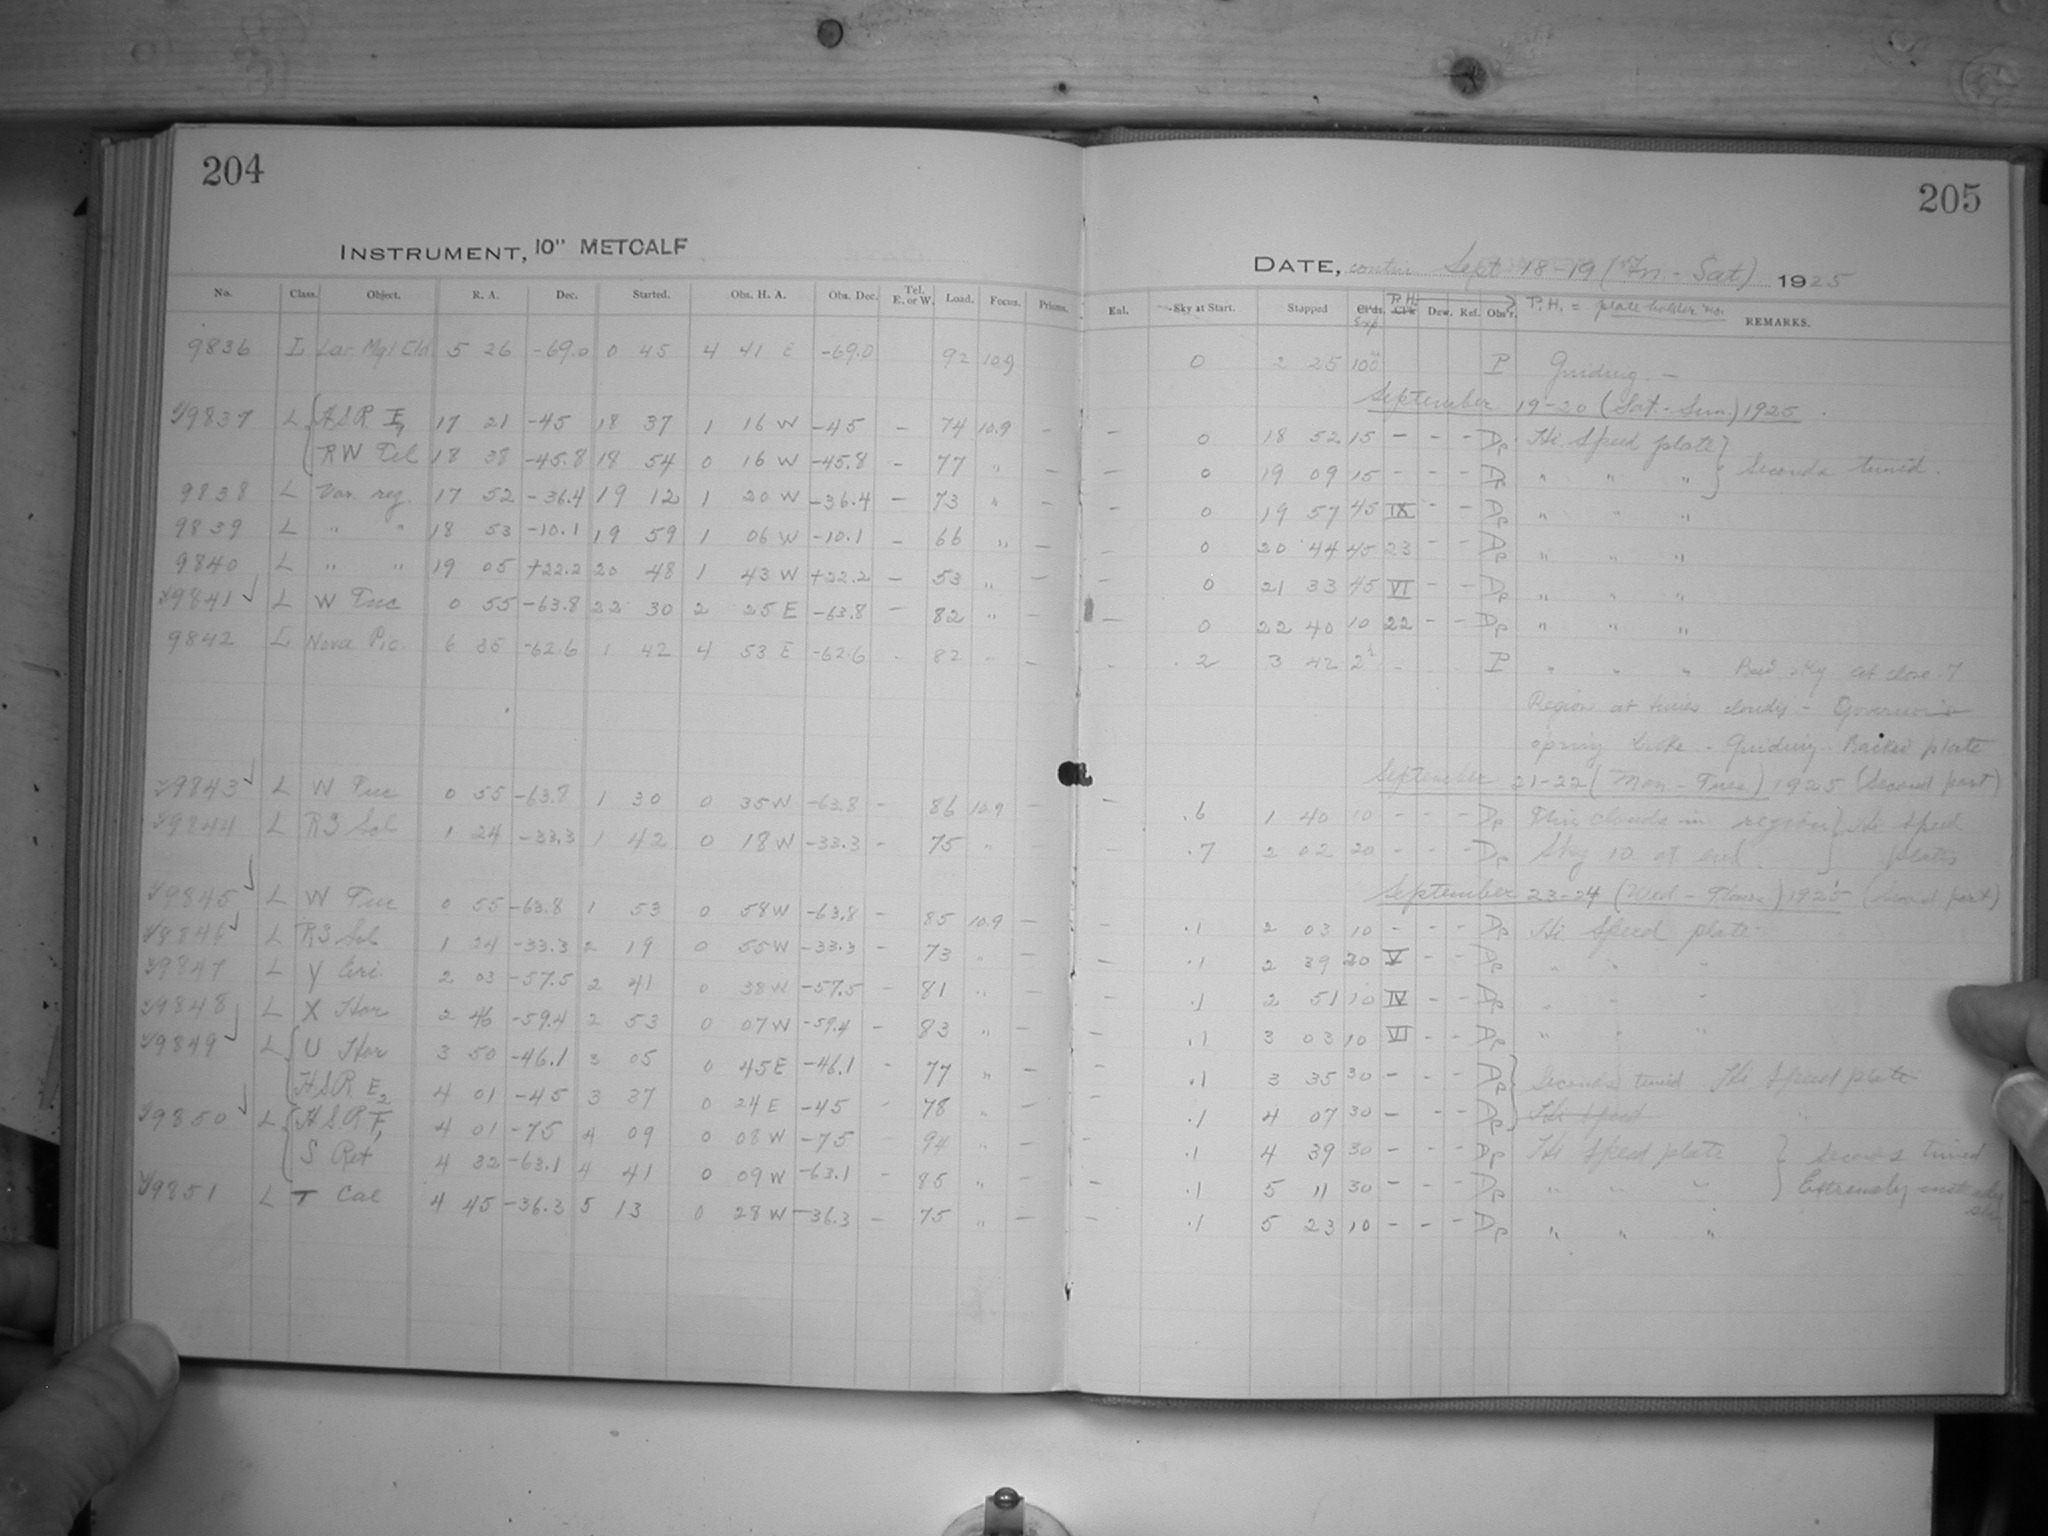 204
INSTRUMENT, 10" METCALF
No. Class. Object. R. A. Dec. Started. Obs. H. A. Obs. Dec. Tel. E. or W. Load. Focus. Prisms.
9836 L Lar Mgl Cld 5 26 -69.0 0 45 4 41 E -69.0 92 10.9
9837 L HSR 17 21 -45 18 37 1 16 W -45 - 74 10.9 -
RW Tel 18 38 -45.8 18 54 0 16 W -45.8 - 77 " -
9838 L Var. reg. 17 52 -36.4 19 12 1 20 W -36.4 - 73 " -
9839 L " " 18 53 -10.1 19 59 1 06 W -10.1 - 66 " -
9840 L " " 19 05 +22.2 20 48 1 43 W +22.2 - 53 " -
9841 L W Tuc 0 55 -63.8 22 30 2 25 E -63.8 - 82 " -
9842 L Nova Pic. 6 35 -62.6 1 42 4 53 E -62.6 - 82 " -
9843 L W Tuc 0 55 -63.8 1 30 0 35 W -63.8 - 86 10.9 -
9844 L R3 Scl 1 24 -33.3 1 42 0 18 W -33.3 - 75 "
9845 L W Tuc 0 55 -63.8 1 53 0 58 W -63.8 - 85 10.9 -
9846 L R3 Scl 1 24 -33.3 2 19 0 55 W -33.3 - 73 " -
9847 L Y Eri 2 03 -57.5 2 41 0 38 W -57.5 - 81 " -
9848 L X Hor 2 46 -59.4 2 53 0 07 W -59.4 - 83 " -
9849 L U Hor 3 50 -46.1 3 05 0 45 E -46.1 - 77 " -
HSR E2 4 01 -45 3 37 0 24 E -45 - 78 " -
9850 L HSR F1 4 01 -75 4 09 0 08 W -75 94 " -
S Ret 4 32 -63.1 4 41 0 09 W -63.1 - 85 " -
9851 L T Cae 4 45 -36.3 5 13 0 28 W -36.3 - 75 " -
205
DATE, contin Sept 18-19 (Fri - Sat) 1925
Enl. Sky at Start. Stopped Exp P.H. Dew. Ref. Obs'r. P. H. = plate holder no. REMARKS.
0 2 25 100 P Guiding -
September 19-20 (Sat.-Sun.) 1925
- 0 18 52 15 - - - Dp Hi Speed plate } Seconds timed.
- 0 19 09 15 - - - Dp " " "
- 0 19 57 45 IX - - Dp " " "
- 0 20 44 45 23 - - Dp " " "
- 0 21 33 45 VI - - Dp " " "
- 0 22 40 10 22 - - Dp " " "
- .2 3 42 2h - - P " " " Bad sky at close.
Region at times cloudy - Governor
spring broke - Guiding. Backed plate
September 21-22 (Mon - Tues) 1925 (Second part)
- .6 1 40 10 - - - Dp Thin clouds in region } Hi speed
- .7 2 02 20 - - - Dp Sky 10 at end. } plates
September 23-24 (Wed - Thurs.) 1925 (Second part)
- .1 2 03 10 - - - Dp Hi Speed plate
- .1 2 39 20 V - - Dp " " "
- .1 2 51 10 IV - - Dp " " "
- .1 3 03 10 VI - - Dp " " "
- .1 3 35 30 - - - Dp Seconds timed Hi Speed plate
- .1 4 07 30 - - - Dp Hi speed "
- .1 4 39 30 - - - Dp Hi Speed plate } Seconds timed
- .1 5 11 30 - - - Dp " " " } Extremely unsteady
- .1 5 23 10 - - - Dp " " "